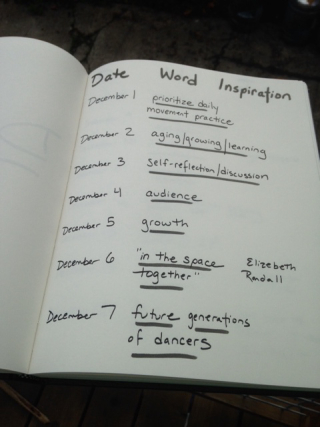 Date Word Inspiration
December 1 prioritize daily
movement practice
December 2 aging/growing/learning
December 3 self-reflection/discussion
December 4 audience
December 5 growth
December 6 "in the space Elizebeth
together" Randall
December 7 future generations
of dancers